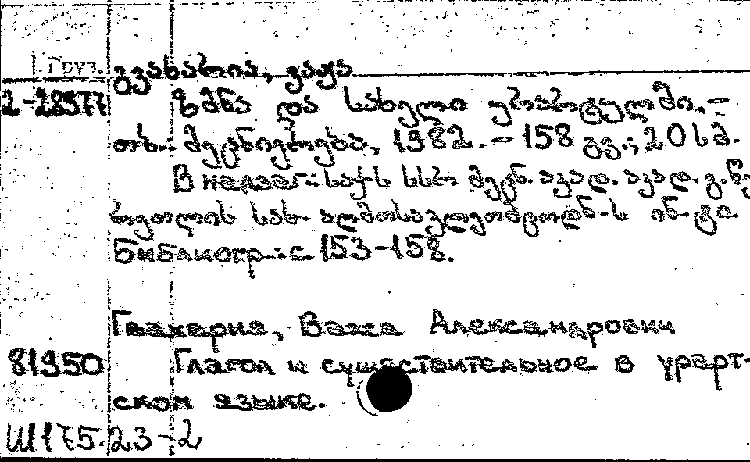 Груз.
გვახარია, ვაჟა
2-28577 ზმნა და სახელი ურარტულში.-
თბ.: მეცნიერება, 1982. - 158 გვ.; 20 სმ.
В надзаг.: საქ-ს სსრ მეცნ. აკად. აკად. გ. წე-
რეთლის სახ. აღმოსავლეთმცოდნ-ს ინ-ტი.
Библиогр.: с. 153-158.
Гвахария, Важа Александрович
81950 Глагол и существительное в урарт-
ском языке.
Ш175.23-2